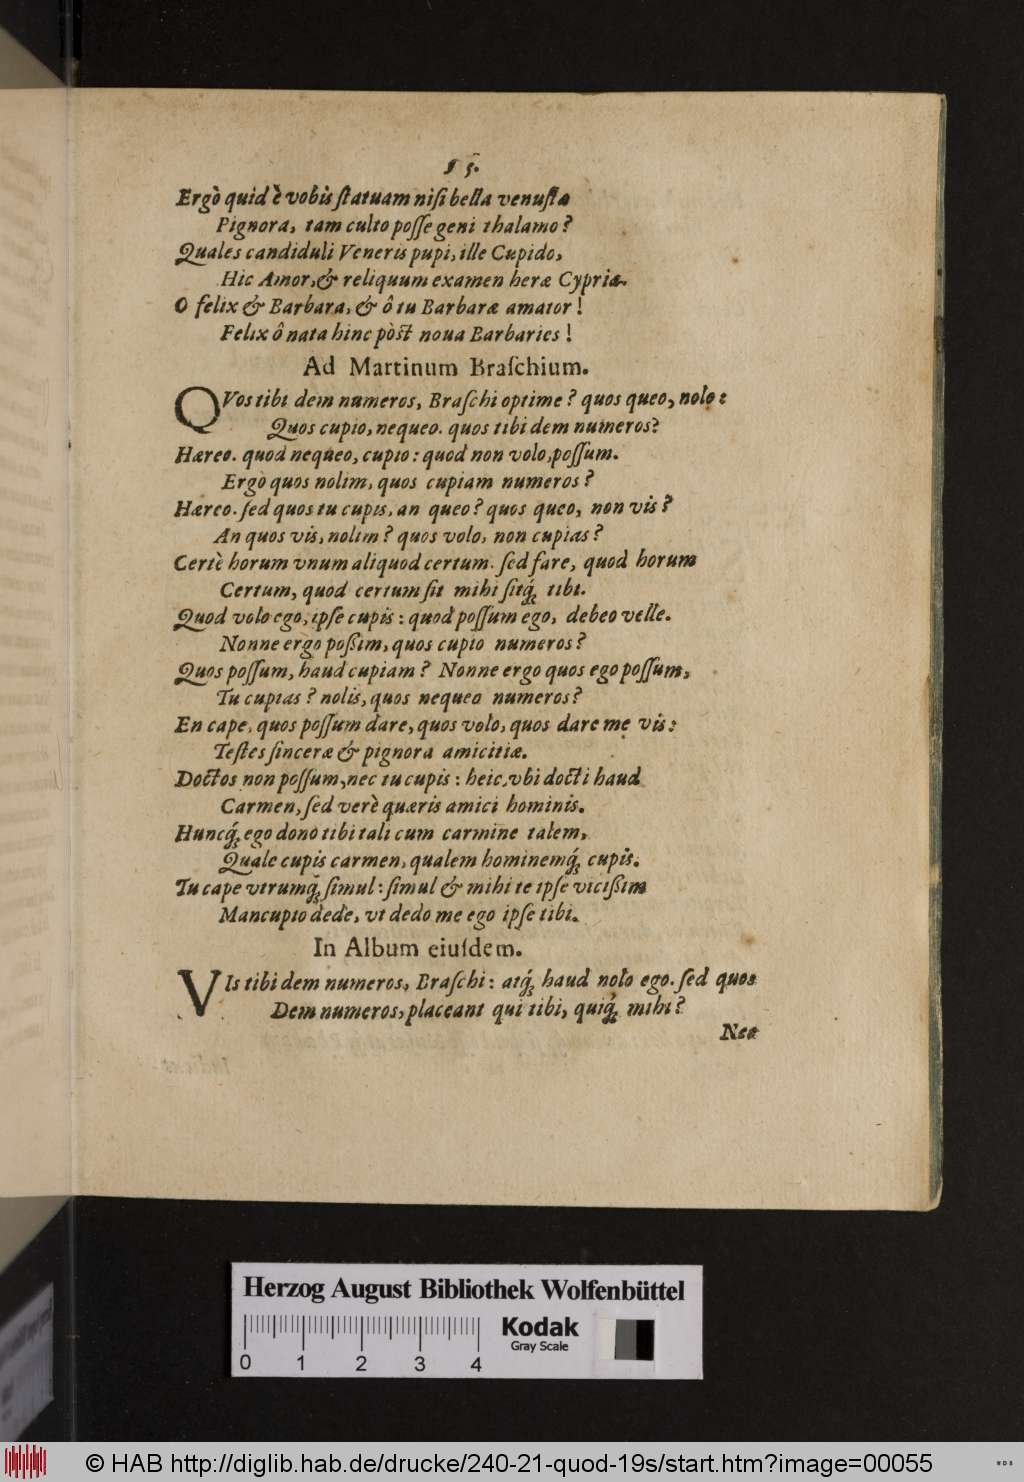 15.
Ergò quid è vobis ſtatuam niſi bella venuſta
Pignora, tam culto poſſe geni thalamo?
Quales candiduli Veneris pupi, ille Cupido,
Hic Amor, & reliquum examen heræ Cypriæ.
O felix & Barbara, & ô tu Barbaræ amator!
Felix ô nata hinc pòst noua Barbaries!
Ad Martinum Braſchium.
QVos tibi dem numeros, Braſchi optime? quos queo, nolo:
Quos cupio, nequeo. quos tibi dem numeros?
Hæreo. quod nequeo, cupio: quod non volo, poſſum.
Ergò quos nolim, quos cupiam numeros?
Hæreo. ſed quos tu cupis, an queo? quos queo, non vis?
An quos vis, nolim? quos volo, non cupias?
Certè horum vnum aliquod certum. ſed fare, quod horum
Certum, quod certum ſit mihi ſitq́ꝫ tibi.
Quod volo ego, ipſe cupis: quod poſſum ego, debeo velle.
Nonne ergo poßim, quos cupio numeros?
Quos poſſum, haud cupiam? Nonne ergo quos ego poſſum,
Tu cupias? nolis, quos nequeo numeros?
En cape, quos poſſum dare, quos volo, quos dare me vis:
Teſtes ſinceræ & pignora amicitiæ.
Doctos non poſſum, nec tu cupis: heic, vbi docti haud
Carmen, ſed verè quæris amici hominis.
Huncq́ꝫ ego dono tibi tali cum carmine talem,
Quale cupis carmen, qualem hominemq́ꝫ cupis.
Tu cape vtrumq́ꝫ ſimul: ſimul & mihi te ipſe vicißim
Mancupio dede, vt dedo me ego ipſe tibi.
In Album eiuſdem.
VIs tibi dem numeros, Braſchi: atq́ꝫ haud nolo ego. ſed quos
Dem numeros, placeant qui tibi, quiq́ꝫ mihi?
Nec
Herzog August Bibliothek Wolfenbüttel
Kodak
Gray Scale
0 1 2 3 4
© HAB http://diglib.hab.de/drucke/240-21-quod-19s/start.htm?image=00055